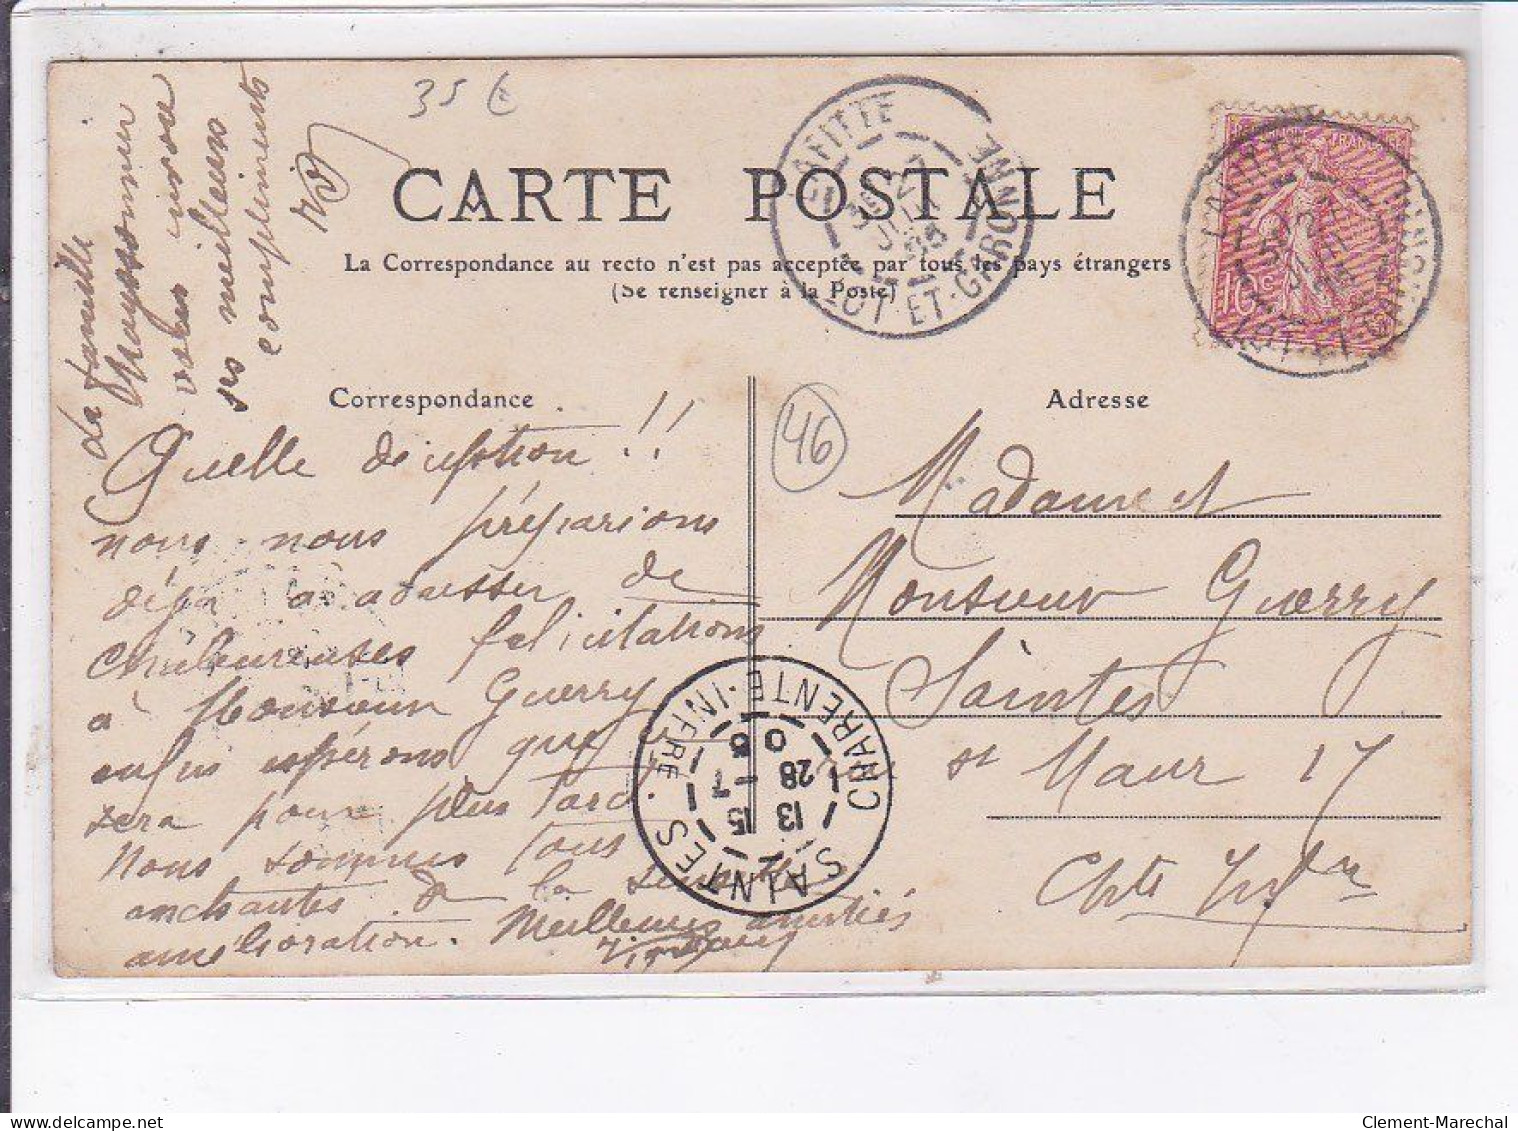 35 €
CARTE POSTALE
La Correspondance au recto n'est pas acceptée par tous les pays étrangers
(Se renseigner à la Poste)
LAFITTE
LOT-ET-GARONNE
LAFITTE
LOT-ET-GARONNE
10c
Correspondance
Quelle déception !!
nous nous préparions
déjà à adresser de
chaleureuses félicitations
à Monsieur Guerry
enfin espérons que
sera pour plus tard.
Nous sommes tous
enchantés de la
amélioration. Meilleures amitiés
La famille
vous envoie
ses meilleurs
compliments
46
Adresse
Madame et
Monsieur Guerry
Saintes
st Maur 17
Chte Infre
SAINTES
CHARENTE-INFRE
13 15
28 - 7
0 5
Clement-Marechal